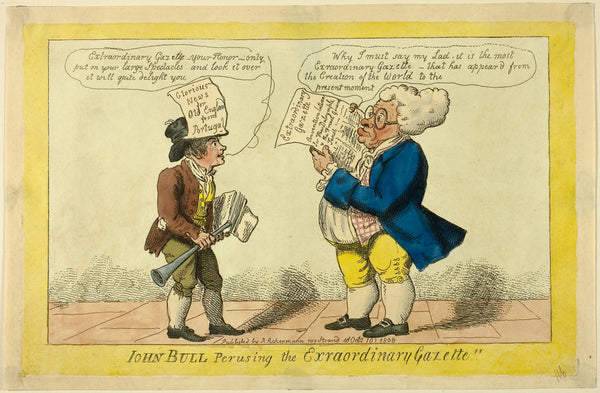 Extraordinary Gazette your Honor - only
put on your large Spectacles and look it over
it will quite delight you
Why I must say my Lad - it is the most
Extraordinary Gazette - that has appear'd from
the Creation of the World to the
present moment
Glorious
News
for
Old England
from
Portugal
Extraordinary
Gazette
Published by R Ackermann 101 Strand
1808
JOHN BULL Perusing the Exraordinary Gazette"